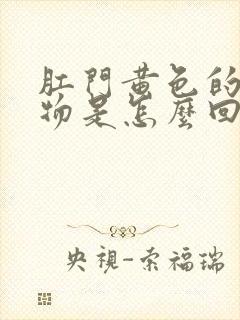 肛門黃色的
物是怎麼回
央視-索福瑞